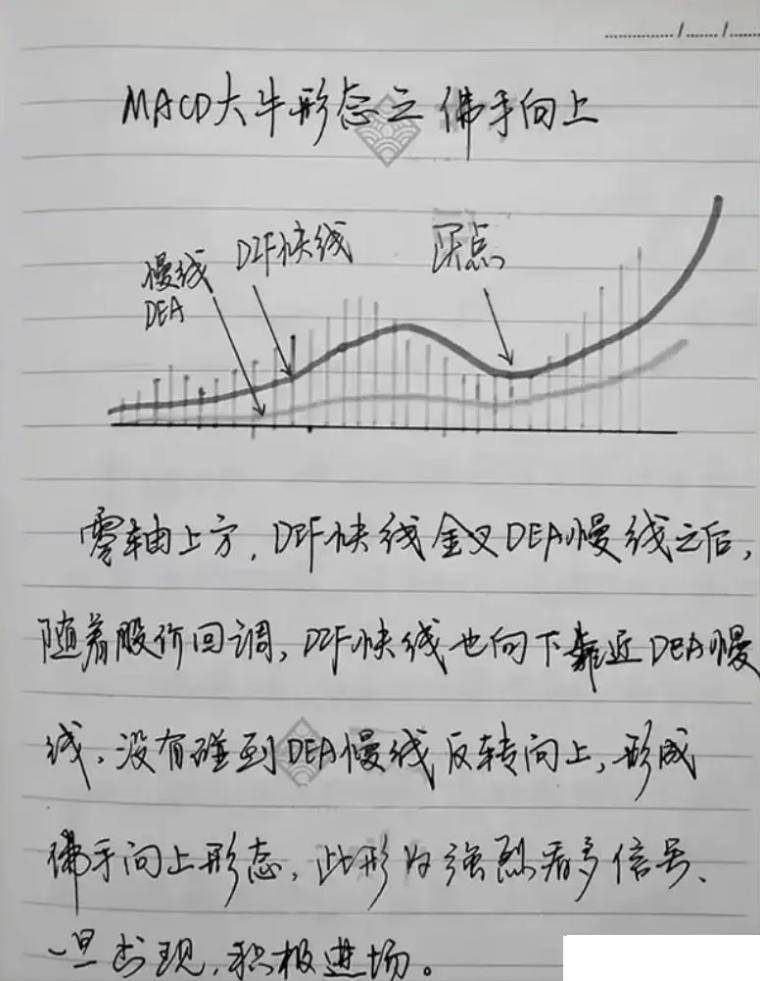 MACD大牛形态之佛手向上
慢线
DEA
DIF快线
买点
零轴上方,DIF快线金叉DEA慢线之后,
随着股价回调,DIF快线也向下靠近DEA慢
线。没有碰到DEA慢线反转向上,形成
佛手向上形态,此形为强烈看多信号、
一旦出现,积极进场。